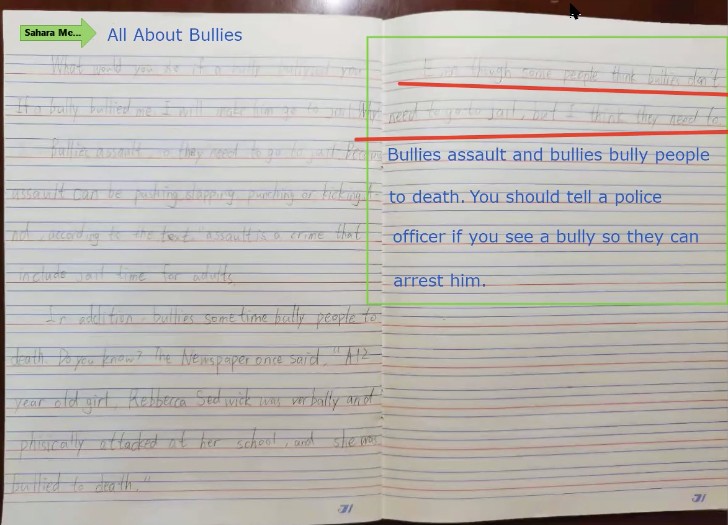 Sahara Me...
All About Bullies
What would you do if a bully bullied you
If a bully bullied me, I will make him go to jail. My
Bullies assault, a they need to go to jail.
assault can be pushing, slapping, punching or kicking.
not, according to the text "assault is a crime that
include jail time for adults.
In addition, bullies sometime bully people to
death. Do you know? The Newspaper once said, "A 12
year old girl, Rebbecca Sedwick was verbally and
phisically attacked at her school, and she was
bullied to death."
Even though some people think bullies don't
need to go to jail, but I think they need to.
Bullies assault and bullies bully people
to death. You should tell a police
officer if you see a bully so they can
arrest him.